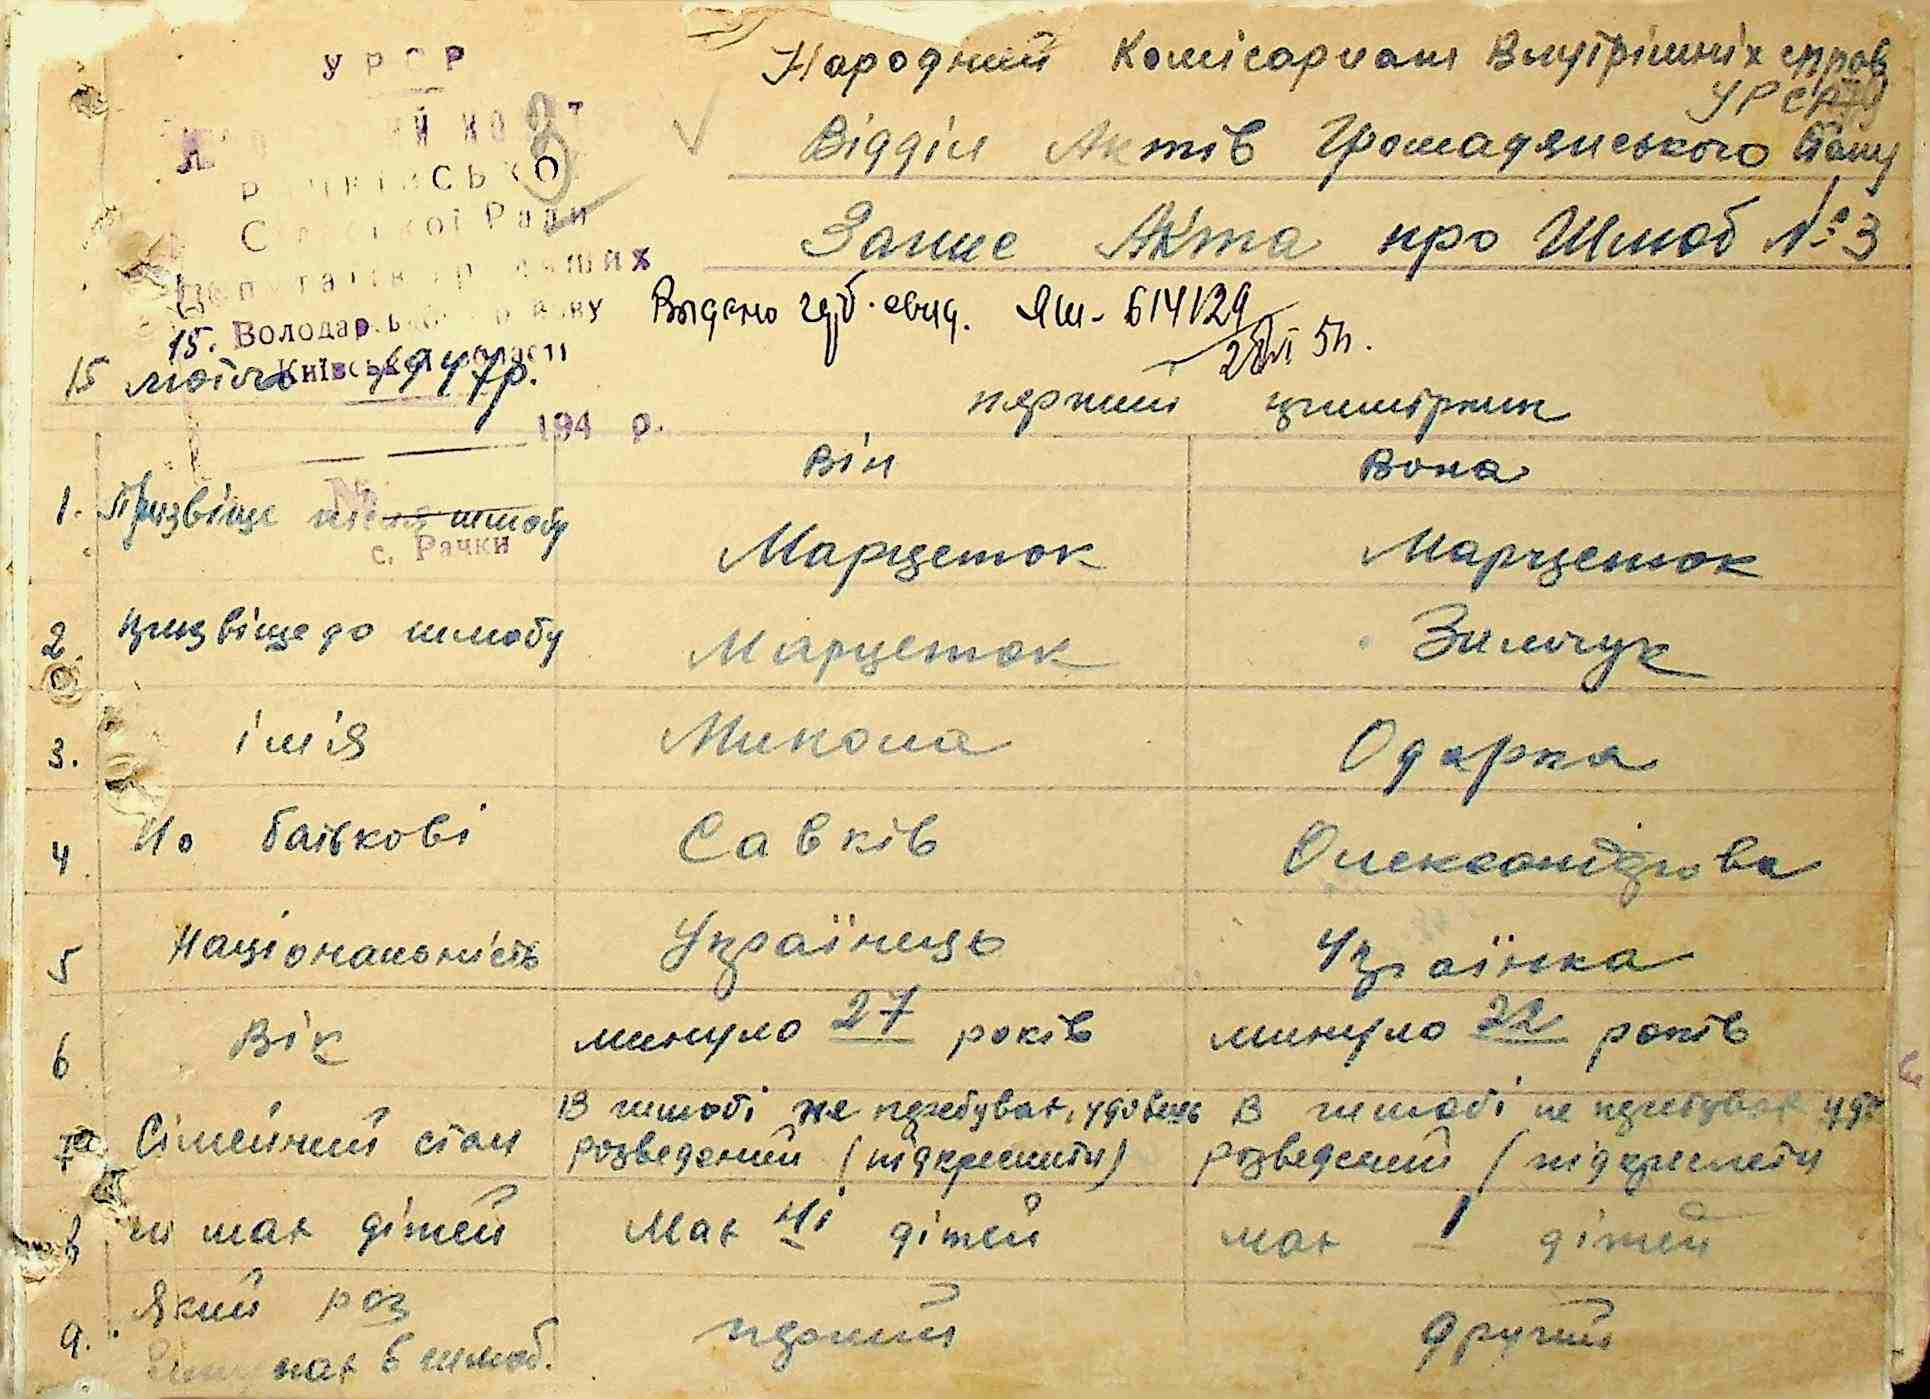 УРСР
Народний Комісаріат Внутрішніх справ
УРСР
Відділ Актів Громадянського Стану
Сільської Ради
Депутатів трудящих
Запис Акта про Шлюб № 3
Видано
свид. ЯШ- 614129
28/VI 5
15. Володарського району
Київської області
15 лютого 1947р.
перший примірник
194 р.
Він Вона
№
1. Прізвище після шлюбу Марценюк Марценюк
с. Рачки
2. прізвище до шлюбу Марценюк Зимчук
3. імія Микола Одарка
4 По батькові Савків Олександрова
5 Національність Українець Українка
6 Вік минуло 27 років минуло 22 років
7 Сімейний стан В шлюбі не перебував, удовець В шлюбі не перебував
розведений (підкреслити) розведений (підкреслити
8 чи має дітей Має ні дітей має 1 дітей
9. Який раз перший другий
вступає в шлюб.